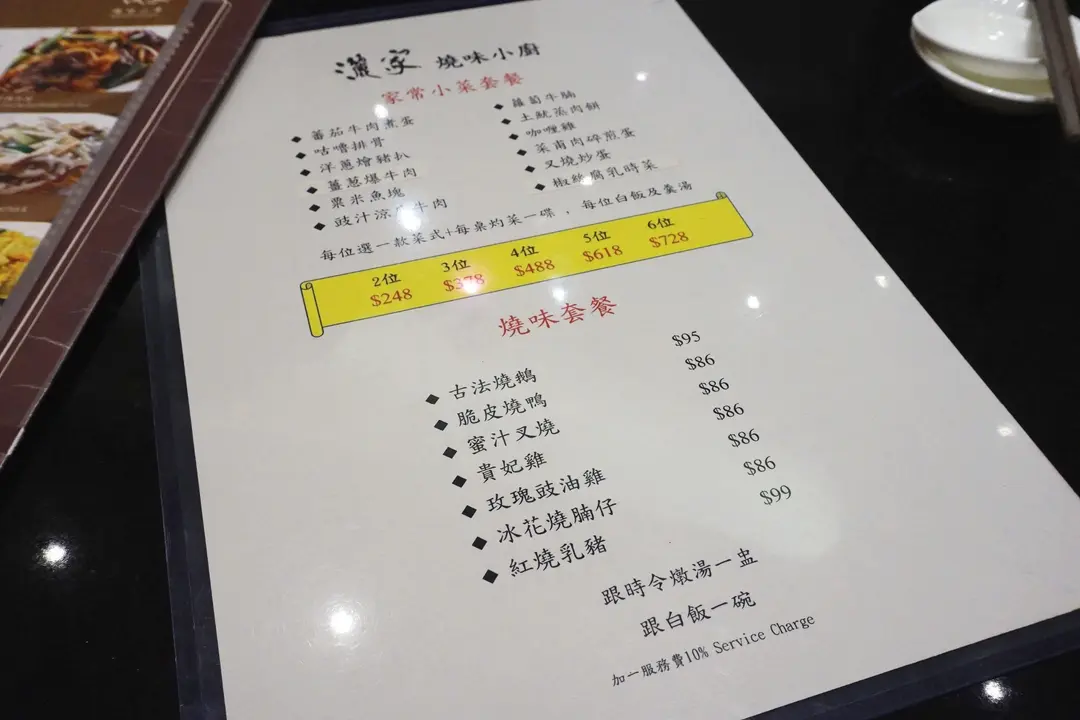 燒味小廚
家常小菜套餐
◆ 蕃茄牛肉煮蛋
◆ 咕嚕排骨
◆ 洋蔥燴豬扒
◆ 薑蔥爆牛肉
◆ 粟米魚塊
◆ 豉汁涼 牛肉
◆ 蘿蔔牛腩
◆ 土魷蒸肉餅
◆ 咖喱雞
◆ 菜甫肉碎煎蛋
◆ 叉燒炒蛋
◆ 椒絲腐乳時菜
每位選一款菜式+每桌灼菜一碟，每位白飯及羹湯
2位 3位 4位 5位 6位
$248 $378 $488 $618 $728
燒味套餐
◆ 古法燒鵝 $95
◆ 脆皮燒鴨 $86
◆ 蜜汁叉燒 $86
◆ 貴妃雞 $86
◆ 玫瑰豉油雞 $86
◆ 冰花燒腩仔 $86
◆ 紅燒乳豬 $99
跟時令燉湯一盅
跟白飯一碗
加一服務費10% Service Charge